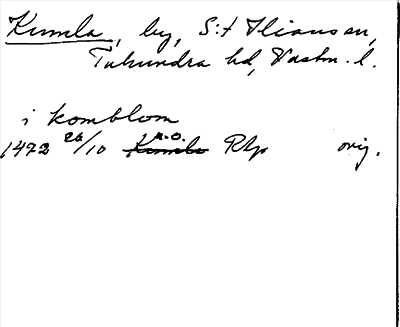 Kumla, by, S:t Ilians sn,
Tuhundra hd, Västm. l.
i komblom
1472 26/10 Kumla u.o. Rbp orig.